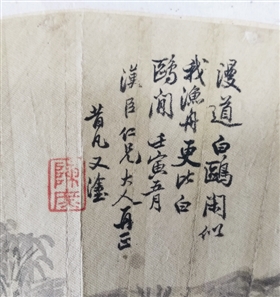 漫道白鷗閑似
我漁舟更比白
鷗閒 壬寅五月
漢臣仁兄大人再正
昔凡又塗
陳康